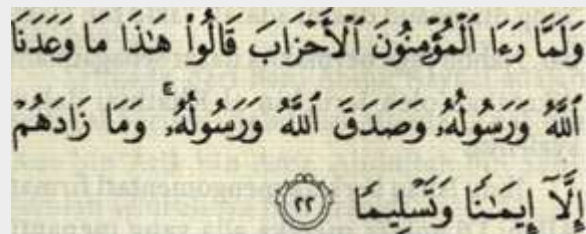 وَلَمَّا رَءَا ٱلْمُؤْمِنُونَ ٱلْأَحْزَابَ قَالُوا۟ هَٰذَا مَا وَعَدَنَا
ٱللَّهُ وَرَسُولُهُۥ وَصَدَقَ ٱللَّهُ وَرَسُولُهُۥ ۚ وَمَا زَادَهُمْ
إِلَّآ إِيمَٰنًا وَتَسْلِيمًا ۝٢٢